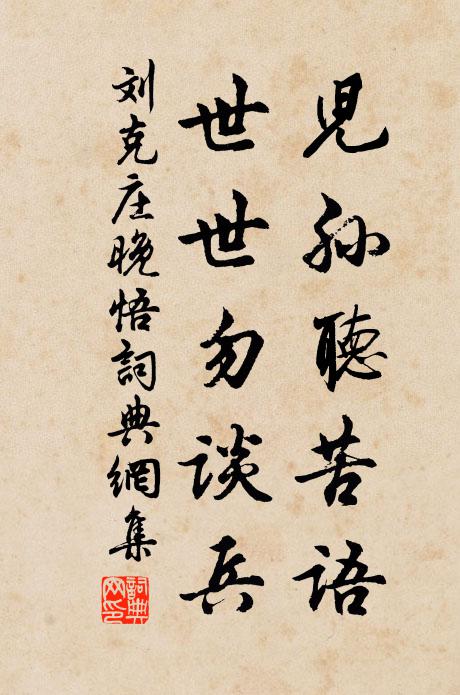 兒孫聽苦語
世世勿談兵
刘克庄晚悟詞典網集
詞典網印